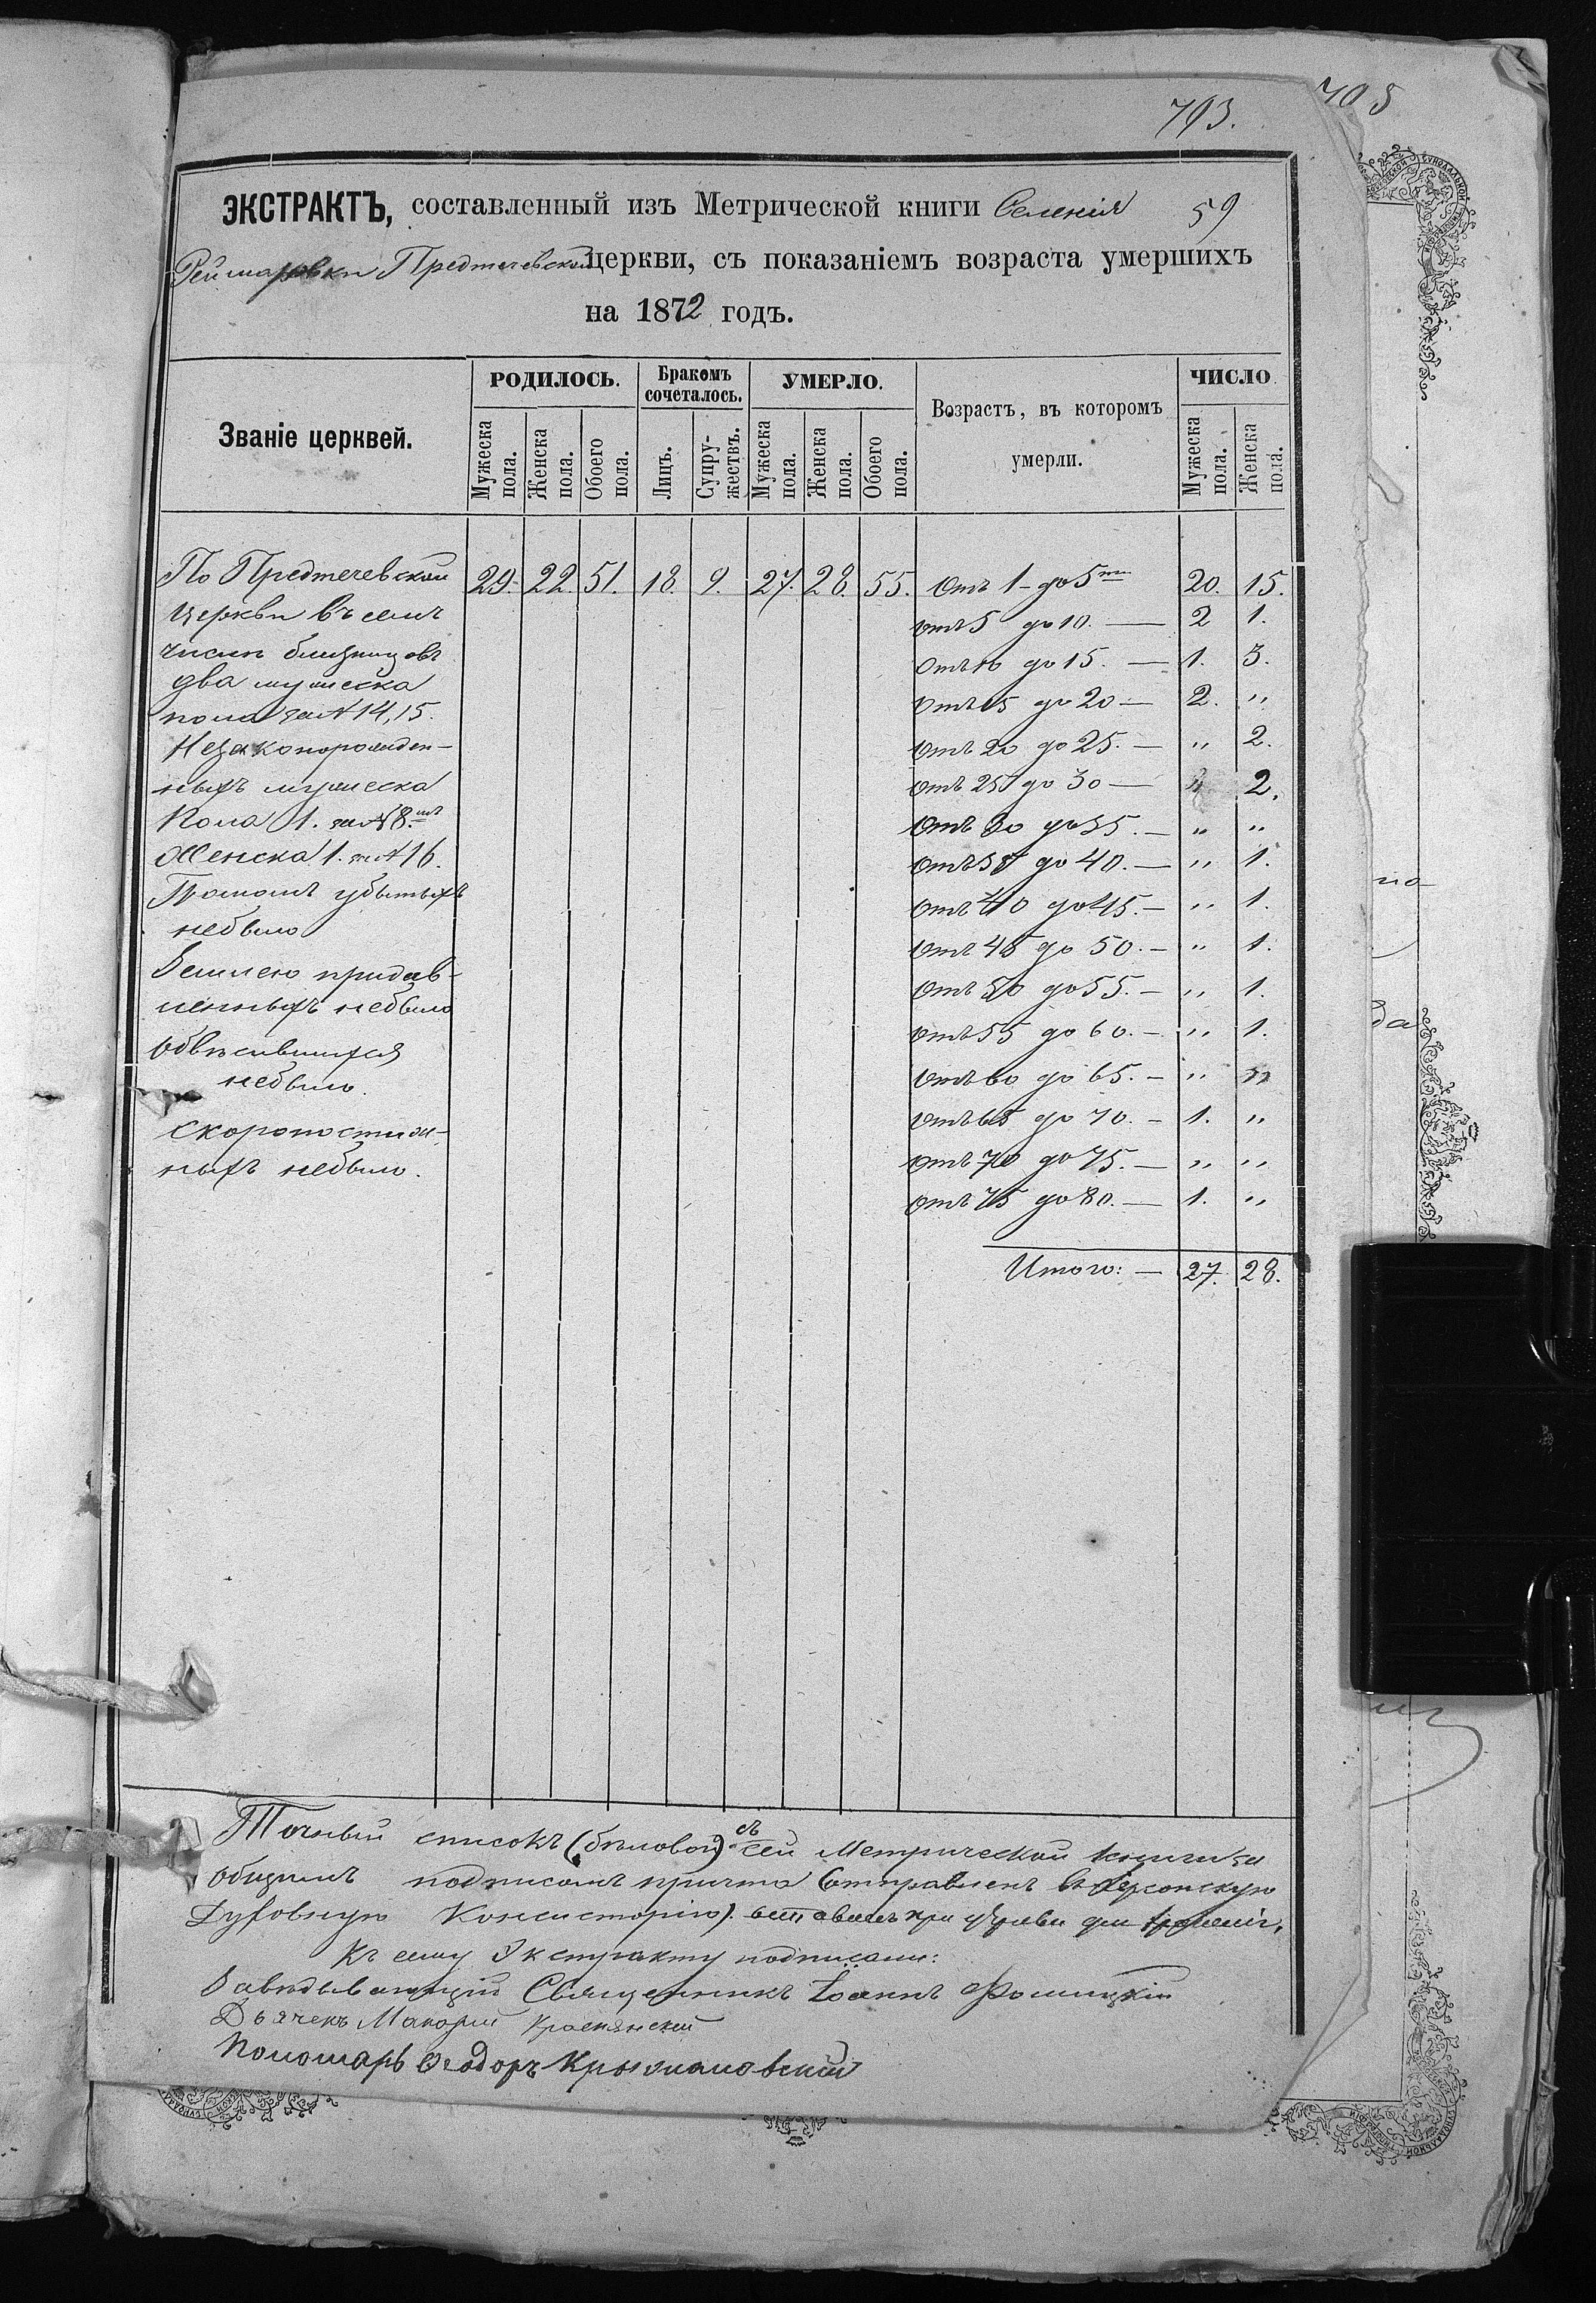 703.
705
ЭКСТРАКТЪ, составленный изъ Метрической книги Селенія 59
Реймаровки Предтечевской церкви, съ показаніемъ возраста умершихъ
на 1872 годъ.
Званіе церквей.
РОДИЛОСЬ.
Бракомъ сочеталось.
УМЕРЛО.
Возрастъ, въ которомъ умерли.
ЧИСЛО.
Мужеска пола. Женска пола. Обоего пола. Лицъ. Супружествъ. Мужеска пола. Женска пола. Обоего пола. Мужеска пола. Женска пола.
По Предтечевской 29. 22. 51. 18. 9. 27. 28. 55. Отъ 1 - до 5 ти 20. 15.
Церкви въ семъ отъ 5 до 10. — 2 1.
числѣ близнецовъ Отъ 10 до 15. — 1. 3.
два мужеска отъ 15 до 20 — 2. "
пола за № 14, 15. отъ 20 до 25. — " 2.
Незаконорожден-
ныхъ мужеска отъ 25 до 30 — " 2.
Пола 1. за № 8. отъ 30 до 35. — " "
Женска 1. за № 16. отъ 35 до 40. — " 1.
Громомъ убытыхъ отъ 40 до 45. — " 1.
небыло отъ 45 до 50. — " 1.
Землею придав-
ленныхъ небыло отъ 50 до 55. — " 1.
Обвѣсившихся отъ 55 до 60. — " 1.
небыло. отъ 60 до 65. — " "
Скоропостиж- отъ 65 до 70. — 1. "
ныхъ небыло. отъ 70 до 75. — " "
отъ 75 до 80. — 1. "
Итого: — 27. 28.
Точный списокъ (бѣловой) съ сей Метрической книги за
общимъ подписомъ причта (отправленъ въ Херсонскую
Духовную Консисторію). оставленъ при церкви для храненія,
Къ сему Экстракту подписали:
Завѣдывающій Священникъ Іоаннъ
Дьячекъ Макарій
Пономарь Ѳеодоръ Крыжановскій